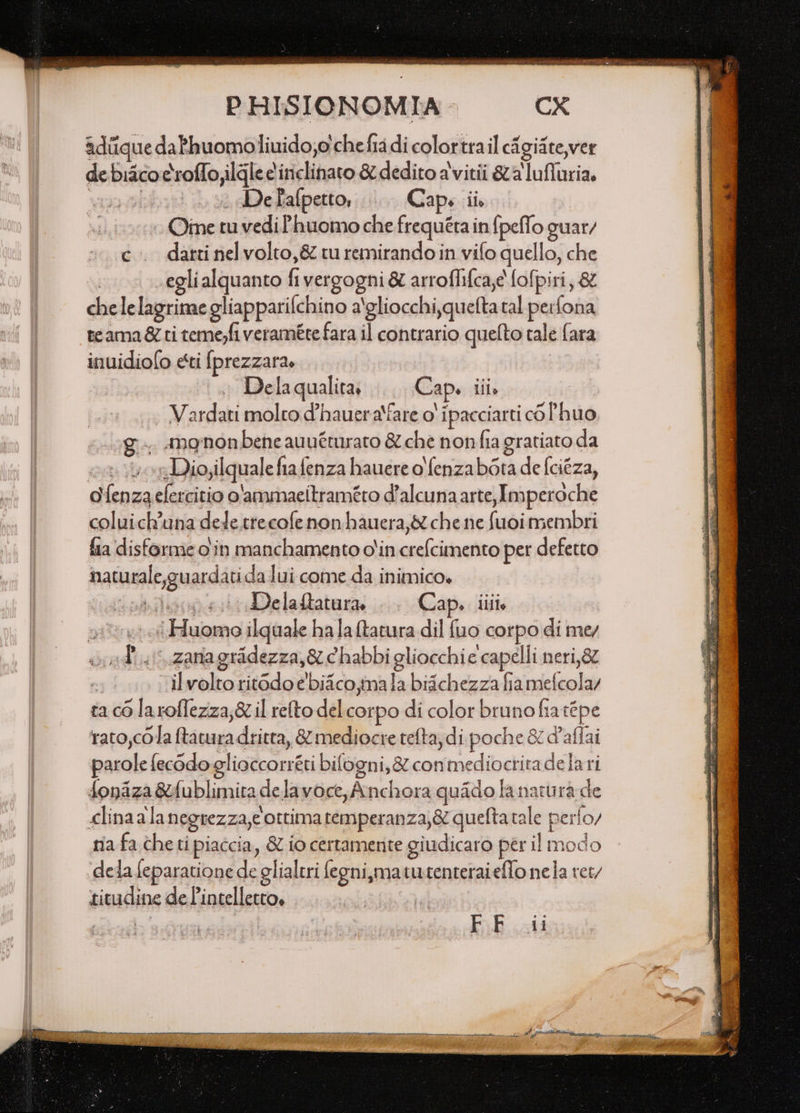 PHISIONOMIA CX
adũque dal'huomo liuido,o' che fia di color tra il cãgiãte,ver
de biãco e'rosso,ilq̃le e' inclinato & dedito a' vitii & a' lussuria.
De l'aspetto, Cap. ii.
Ome tu vedi l'huomo che frequẽta in spesso guar/
c darti nel volto,& tu remirando in viso quello, che
egli alquanto si vergogni & arrossisca,e' sospiri, &
che le lagrime gli apparischino a' gli occhi,questa tal persona
te ama & ti teme,si veramẽte fara il contrario questo tale sara
inuidioso e' ti sprezzara.
De la qualita, Cap. iii.
Vardati molto d'hauer a' fare o' ipacciarti cõ l'huo
g mo non bene auuẽturato & che non sia gratiato da
Dio,ilquale sia senza hauere o' senza bõta de sciẽza,
o' senza esercitio o' ammaestramẽto d'alcuna arte,Imperoche
colui ch'una de le tre cose non hauera,& che ne suoi membri
sia disforme o' in manchamento o' in crescimento per defetto
naturale,guardati da lui come da inimico.
De la statura. Cap. iiii.
Huomo ilquale ha la statura dil suo corpo di me/
l' zana grãdezza,& c'habbi gliocchi e' capelli neri,&
il volto ritõdo e' biãco,ma la biãchezza sia mescola/
ta cõ la rossezza,& il resto del corpo di color bruno sia tẽpe
rato,cõ la statura dritta, & mediocre testa,di poche & d'assai
parole secõdo gli occorrẽti bisogni,& con mediocrita de la ri
sonãza & sublimita de la voce,Anchora quãdo la natura de
clina a' la negrezza,e' ottima temperanza,& questa tale perso/
na fa che ti piaccia, & io certamente giudicaro per il modo
de la separatione de gli altri segni,ma tu tenterai esso ne la ret/
titudine de l'intelletto.
FF ii